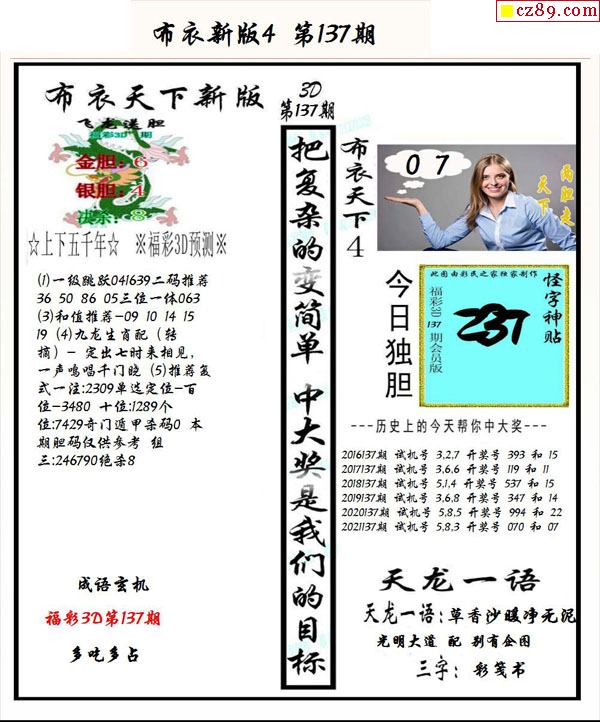 cz89.com
布衣新版4 第137期
布衣天下新版
飞龙送胆
福彩3D 期
金胆：6
银胆：4
决杀：8
☆上下五千年☆ ※福彩3D预测※
(1)一级跳跃041639二码推荐
36 50 86 05三位一体063
(3)和值推荐-09 10 14 15
19 (4)九龙生肖配（转
摘）- 定出七时来相见，
一声鸣唱千门晓 (5)推荐复
式一注:2309单选定位-百
位-3480 十位:1289个
位:7429奇门遁甲杀码0 本
期胆码仅供参考 组
三:246790绝杀8
成语玄机
福彩3D第137期
多吃多占
3D
第137期
把复杂的变简单 中大奖是我们的目标
布衣天下4
0 7
两胆走
天下
今日独胆
此图由彩民之家独家制作
福彩3D 137 期会员版
237
怪字神贴
---历史上的今天帮你中大奖----
2016137期 试机号 3,2,7 开奖号 393 和 15
2017137期 试机号 6,6,6 开奖号 119 和 11
2018137期 试机号 5,1,4 开奖号 537 和 15
2019137期 试机号 3,6,8 开奖号 347 和 14
2020137期 试机号 5,8,5 开奖号 994 和 22
2021137期 试机号 5,8,3 开奖号 070 和 07
天龙一语
天龙一语：草香沙暖净无泥
光明大道 配 别有企图
三字：彩笺书